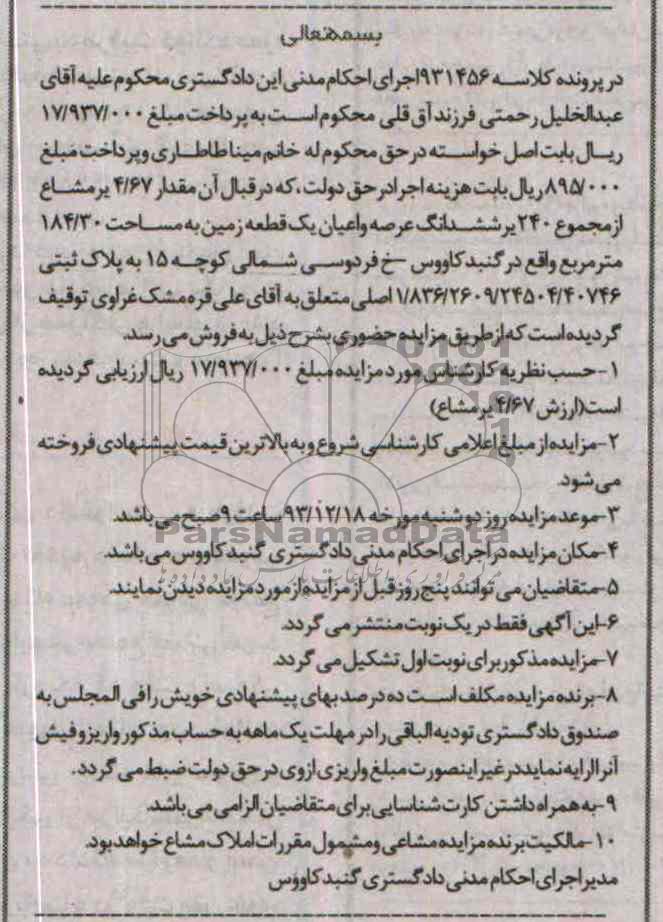 بسمه‌تعالی
در پرونده کلاسه ۹۳۱۴۵۶ اجرای احکام مدنی این دادگستری محکوم علیه آقای
عبدالخلیل رحمتی فرزند آق قلی محکوم است به پرداخت مبلغ ۱۷/۹۳۷/۰۰۰
ریال بابت اصل خواسته در حق محکوم له خانم مینا طاطاری و پرداخت مبلغ
۸۹۵/۰۰۰ ریال بابت هزینه اجرا در حق دولت، که در قبال آن مقدار ۴/۶۷ یر مشاع
از مجموع ۲۴۰ یر ششدانگ عرصه و اعیان یک قطعه زمین به مساحت ۱۸۴/۳۰
متر مربع واقع در گنبد کاووس – خ فردوسی شمالی کوچه ۱۵ به پلاک ثبتی
۱/۸۳۶/۲۶۰۹/۲۴۵۰۴/۴۰۷۴۶ اصلی متعلق به آقای علی قره مشک غراوی توقیف
گردیده است که از طریق مزایده حضوری بشرح ذیل به فروش می رسد.
۱- حسب نظریه کارشناس مورد مزایده مبلغ ۱۷/۹۳۷/۰۰۰ ریال ارزیابی گردیده
است (ارزش ۴/۶۷ یر مشاع)
۲- مزایده از مبلغ اعلامی کارشناسی شروع و به بالاترین قیمت پیشنهادی فروخته
می شود.
۳- موعد مزایده روز دوشنبه مورخه ۹۳/۱۲/۱۸ ساعت ۹ صبح می باشد.
۴- مکان مزایده در اجرای احکام مدنی دادگستری گنبد کاووس می باشد.
ParsNamadData
۵- متقاضیان می توانند پنج روز قبل از مزایده از مورد مزایده دیدن نمایند.
۶- این آگهی فقط در یک نوبت منتشر می گردد.
۷- مزایده مذکور برای نوبت اول تشکیل می گردد.
۸- برنده مزایده مکلف است ده درصد بهای پیشنهادی خویش را فی المجلس به
صندوق دادگستری تودیه الباقی را در مهلت یک ماهه به حساب مذکور واریز و فیش
آنرا ارایه نماید در غیر اینصورت مبلغ واریزی از وی در حق دولت ضبط می گردد.
۹- به همراه داشتن کارت شناسایی برای متقاضیان الزامی می باشد.
۱۰- مالکیت برنده مزایده مشاعی و مشمول مقررات املاک مشاع خواهد بود.
مدیر اجرای احکام مدنی دادگستری گنبد کاووس